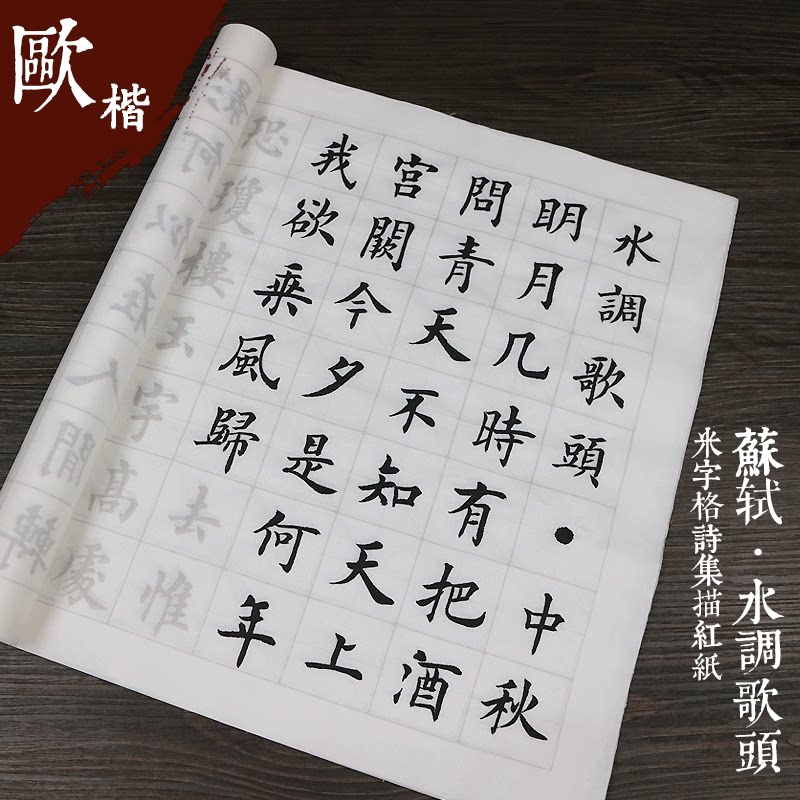 歐楷
水調歌頭●中秋
明月几時有把酒
問青天不知天上
宮闕今夕是何年
我欲乘風歸去惟
恐瓊樓玉宇高處
影何似在人間轉
蘇轼·水調歌頭
米字格詩集描紅紙